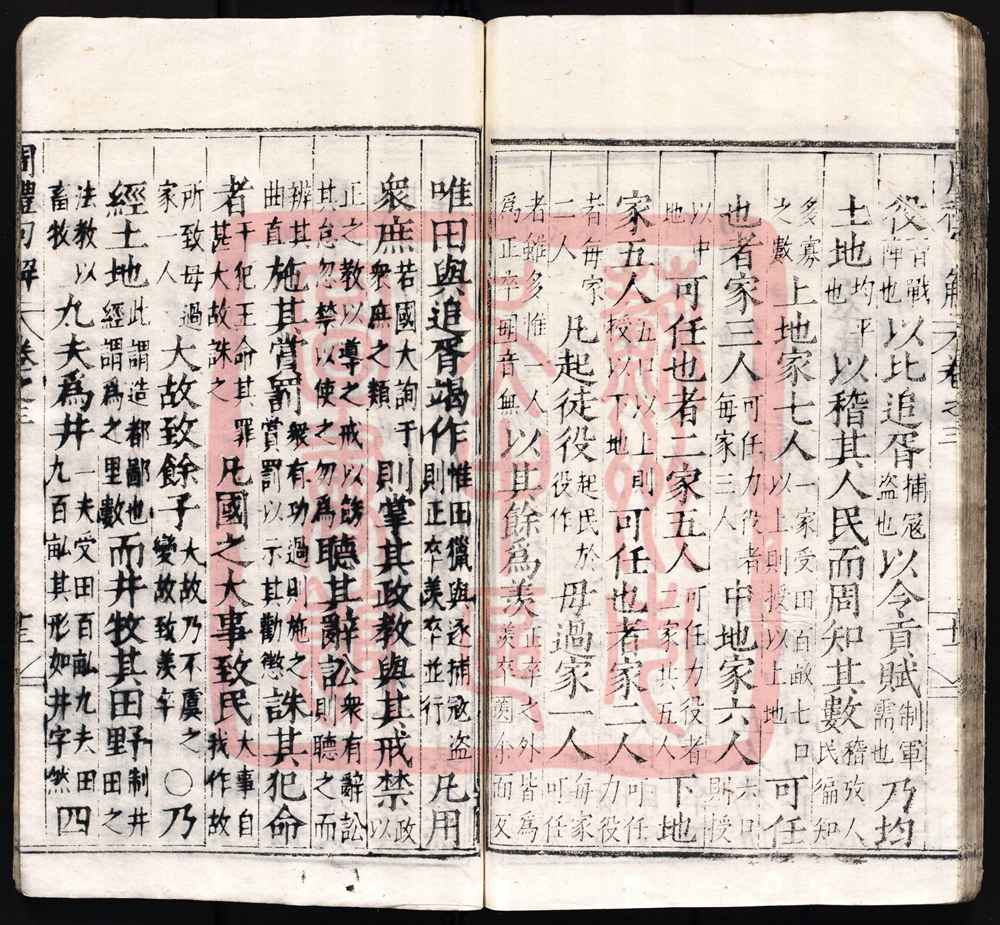 周禮句解 卷之三
役習戰陣也以比追胥捕寇盜也以令貢賦制軍需也乃均
土地均平也以稽其人民而周知其數稽攷人民徧知
多寡之數上地家七人一家受田百畝七口以上則授以上地可任
也者家三人可任力役者每家三人中地家六人六口則授
以中地可任也者二家五人可任力役者二家共五人下地
家五人五口以上則授以下地可任也者家二人可任力役
者每家二人凡起徒役起民於役作毋過家一人每家可任
者雖多惟一人為正卒毋音無以其餘爲羨正卒之外皆爲羨卒羨余面反
唯田與追胥竭作惟田獵與逐捕寇盜則正卒羨卒並行凡用
衆庶若國大詢于衆庶之類則掌其政教與其戒禁政以
正之教以導之戒以飭其怠忽禁以使之勿爲聽其辭訟衆有辭訟則聽之而
辨其曲直施其賞罰衆有功過則施之賞罰以示其勸懲誅其犯命
者其干犯王命其罪甚大故誅之凡國之大事致民大事自我作故
所致毋過家一人大故致餘子大故乃不虞之變故致羨卒○乃
經土地此謂造都鄙也經謂爲之里數而井牧其田野制井田之
法教以畜牧九夫爲井一夫受田百畝九夫田九百畝其形如井字然四
周禮句解 卷之三 十三